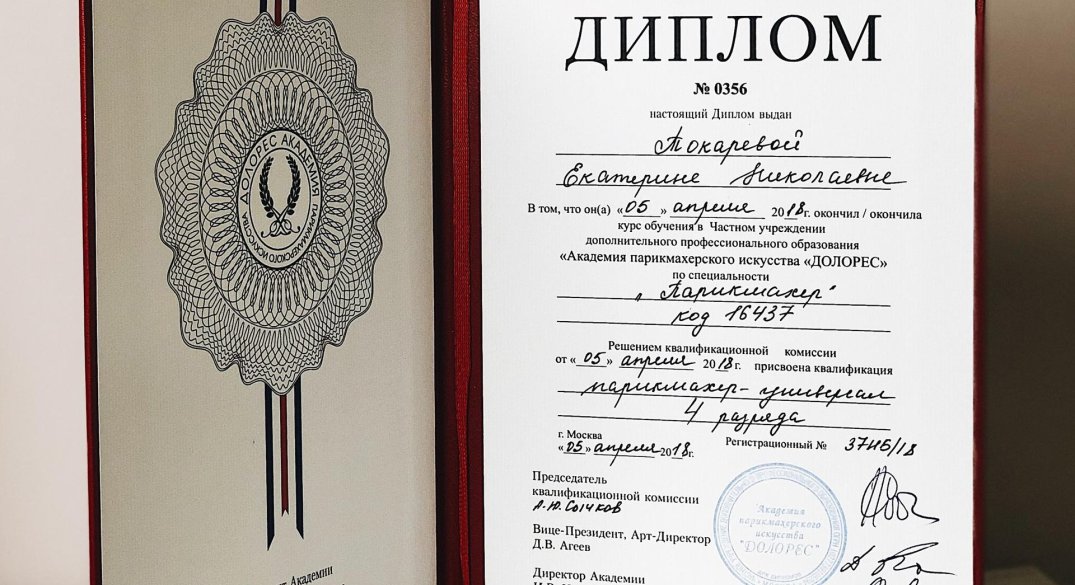 ДОЛОРЕС АКАДЕМИЯ ПАРИКМАХЕРСКОГО ИСКУССТВА
Академии
ДИПЛОМ
№ 0356
настоящий Диплом выдан
Токаревой
Екатерине Николаевне
В том, что он(а) «05» апреля 2018г. окончил / окончила
курс обучения в Частном учреждении
дополнительного профессионального образования
«Академия парикмахерского искусства «ДОЛОРЕС»
по специальности
"Парикмахер"
код 16437
Решением квалификационной комиссии
от «05» апреля 2018г. присвоена квалификация
парикмахер-универсал
4 разряда
г. Москва
«05» апреля 2018г.
Регистрационный № 3745/18
Председатель
квалификационной комиссии
А.Ю. Сычков
Вице-Президент, Арт-Директор
Д.В. Агеев
Директор Академии
Академия
парикмахерского
искусства
"ДОЛОРЕС"